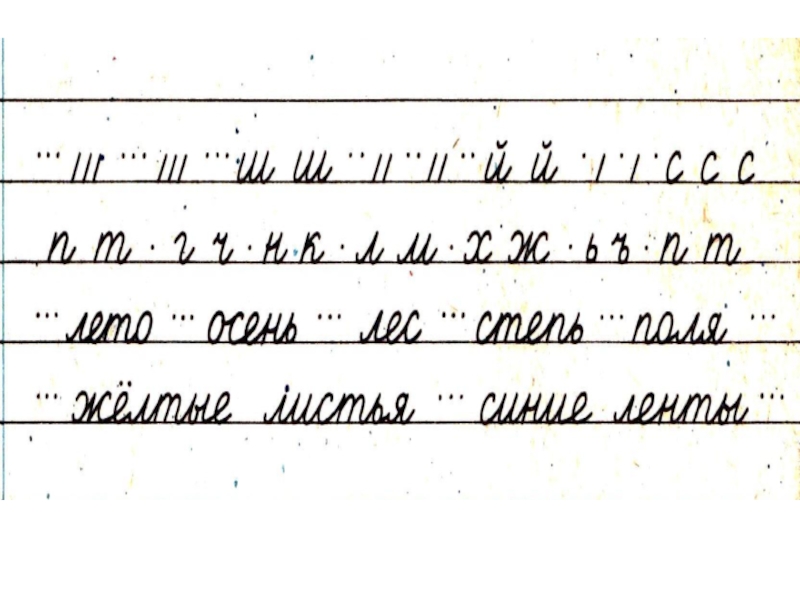 ... ııı ... ııı ... ш ш .. ıı .. ıı .. й й . ı . ı . с с с
п т . г ч . н к . л м . х ж . ь ъ . п т
... лето ... осень ... лес ... степь ... поля ...
... жёлтые листья ... синие ленты ...